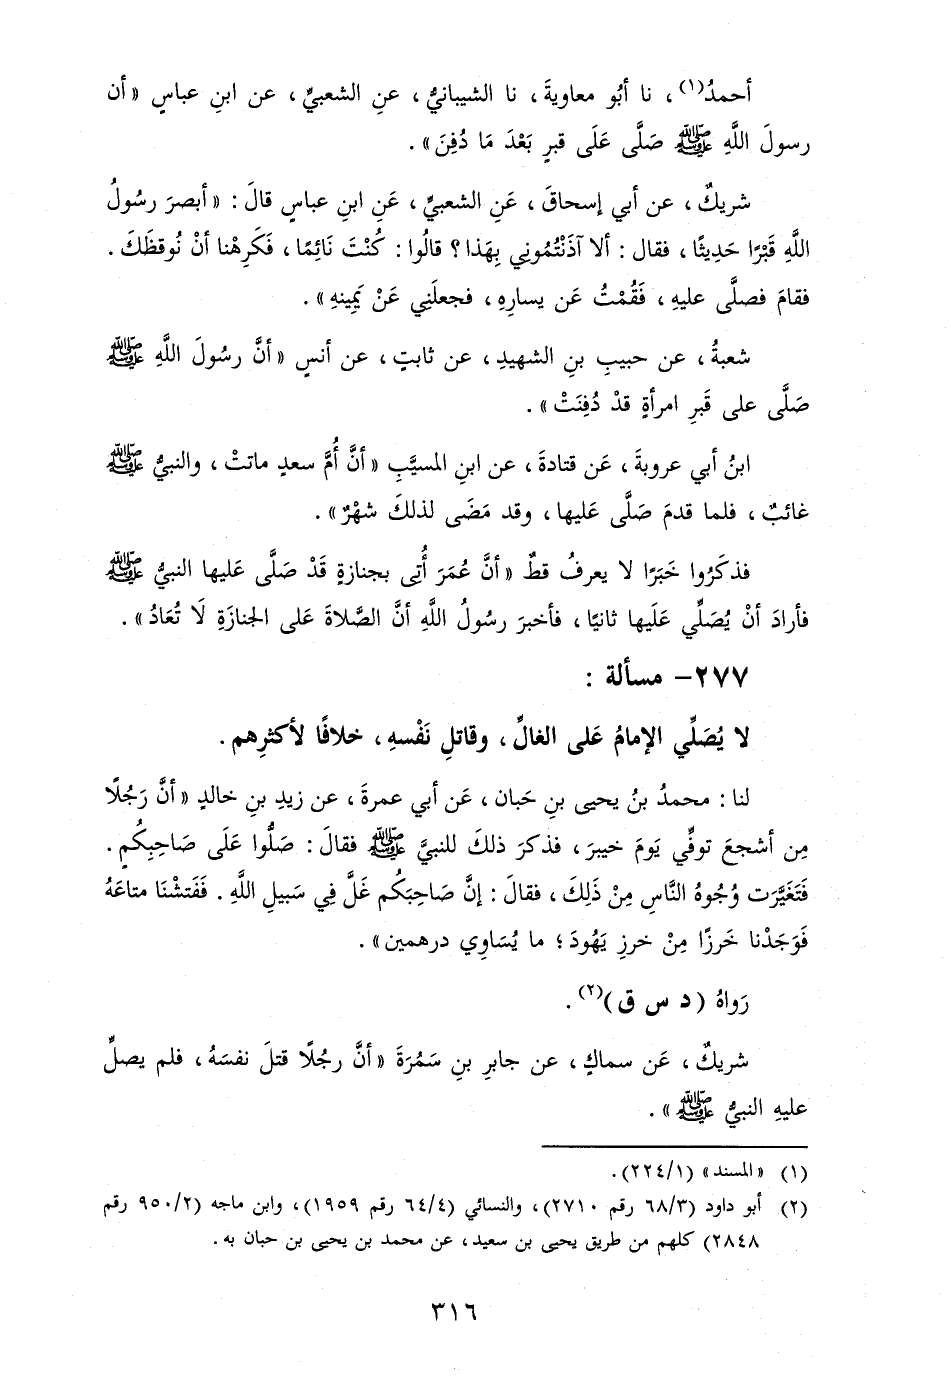 أحمدُ(١)، نا أبُو معاويةَ، نا الشيبانيُّ، عنِ الشعبيِّ، عن ابنِ عباسٍ «أن
رسولَ اللَّهِ ﷺ صَلَّى عَلَى قبرٍ بَعْدَ مَا دُفِنَ».
شريكٌ، عن أبي إسحاقَ، عَنِ الشعبيِّ، عَنِ ابنِ عباسٍ قالَ: «أبصرَ رسُولُ
اللَّهِ قَبْرًا حَدِيثًا، فقال: ألا آذَنْتُمُوني بِهَذا؟ قالُوا: كُنْتَ نَائِمًا، فَكَرِهْنا أنْ نُوقظَكَ.
فقامَ فصلَّى عليهِ، فَقُمْتُ عَن يسارِهِ، فجعلَنِي عَنْ يَمِينِهِ».
شعبةُ، عن حبيبِ بنِ الشهيدِ، عن ثابتٍ، عن أنسٍ «أنَّ رسُولَ اللَّهِ ﷺ
صَلَّى على قَبرِ امرأةٍ قدْ دُفِنَتْ».
ابنُ أبي عروبةَ، عَن قتادةَ، عن ابنِ المسيَّبِ «أنَّ أُمَّ سعدٍ ماتتْ، والنبيُّ ﷺ
غائبٌ، فلما قدمَ صَلَّى عَليها، وقد مَضَى لذلكَ شهْرٌ».
فذكَرُوا خَبَرًا لا يعرفُ قطٌ «أنَّ عُمَرَ أُتِى بجنازةٍ قَدْ صَلَّى عَليها النبيُّ ﷺ
فأرادَ أنْ يُصَلِّي عَلَيها ثانيًا، فأخبرَ رسُولُ اللَّهِ أنَّ الصَّلاةَ عَلى الجنازَةِ لَا تُعَادُ».
٢٧٧- مسألة:
لا يُصَلِّي الإمامُ عَلى الغالِّ، وقاتلِ نَفْسهِ، خلافًا لأكثرِهم.
لنا: محمدُ بنُ يحيى بنِ حَبان، عَن أبي عمرةَ، عن زيدِ بنِ خالدٍ «أنَّ رَجُلًا
مِن أشجعَ توفِّي يَومَ خيبرَ، فذكرَ ذلكَ للنبيِّ ﷺ فقالَ: صَلُّوا عَلَى صَاحِبِكُم.
فَتَغَيَّرَت وُجُوهُ النَّاسِ مِنْ ذَلِكَ، فقالَ: إنَّ صَاحِبَكُم غَلَّ فِي سَبِيلِ اللَّهِ. فَفَتشْنَا متاعَهُ
فَوَجَدْنا خَرزًا مِنْ خرزِ يَهُودَ؛ ما يُسَاوِي درهمين».
رَواهُ (د س ق)(٢).
شريكٌ، عَن سماكٍ، عن جابرِ بنِ سَمُرَةَ «أنَّ رجُلًا قتلَ نفسَهُ، فلم يصلِّ
عليهِ النبيُّ ﷺ».
(١) «المسند» (٢٢٤/١).
(٢) أبو داود (٦٨/٣ رقم ٢٧١٠)، والنسائي (٦٤/٤ رقم ١٩٥٩)، وابن ماجه (٩٥٠/٢ رقم
٢٨٤٨) كلهم من طريق يحيى بن سعيد، عن محمد بن يحيى بن حبان به.
٣١٦